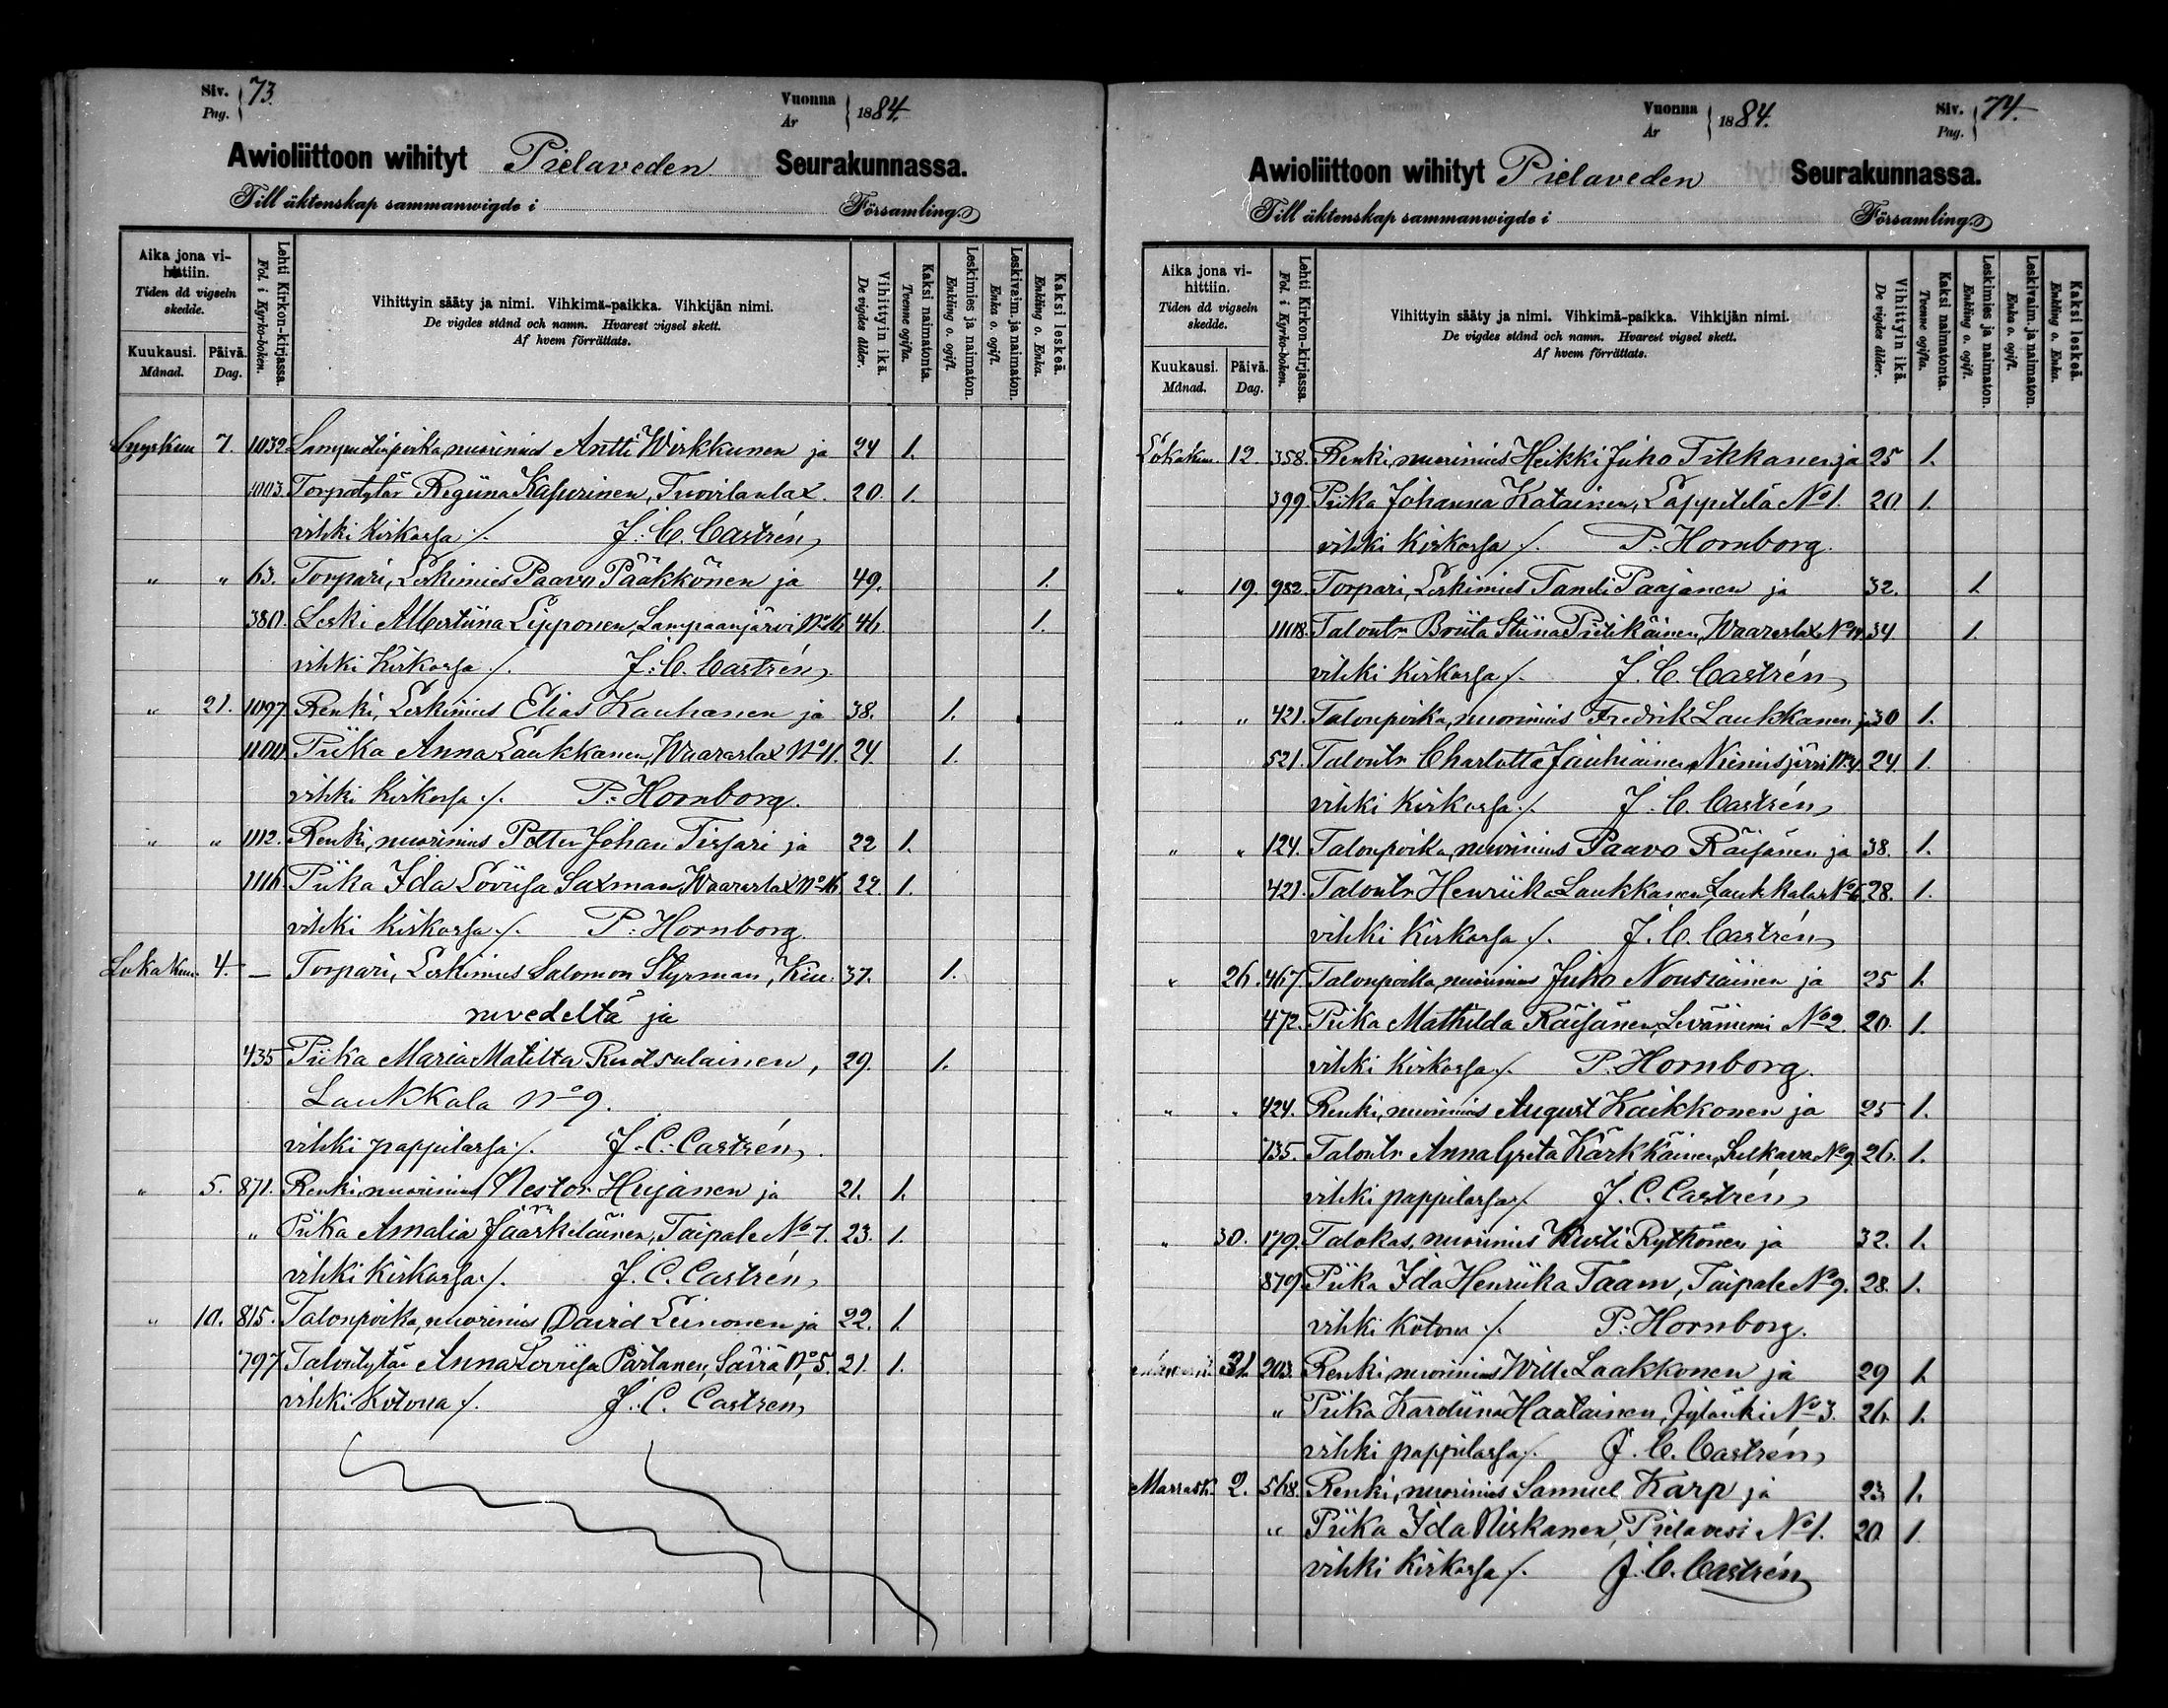 Siv. Pag. 73.
Vuonna År 1884.
Awioliittoon wihityt Pielaveden Seurakunnassa.
Till äktenskap sammanwigde i Församling.
Aika jona vihittiin. Tiden då vigseln skedde.
Kuukausi. Månad.
Päivä. Dag.
Lehti Kirkon-kirjassa. Fol. i Kyrko-boken.
Vihittyin sääty ja nimi. Vihkimä-paikka. Vihkijän nimi.
De vigdes stånd och namn. Hvarest vigsel skett.
Af hvem förrättats.
Vihittyin ikä. De vigdes ålder.
Kaksi naimatonta. Tvenne ogifta.
Leskimies ja naimaton. Enkling o. ogift.
Leskivaim. ja naimaton. Enka o. ogift.
Kaksi leskeä. Enkling o. Enka.
Syyskuu 7. 1032 nuorimies Antti Wirkkunen ja 24 1.
1003. Torpatytär Regiina Kasurinen, Tuovilanlax. 20. 1.
vihki Kirkossa ./. J. C. Castrén
" " 63. Torpari, Leskimies Paavo Pääkkönen ja 49. 1.
380. Leski Albertiina Lipponen, Lampaanjärvi No 16. 46. 1.
vihki Kirkossa ./. J. C. Castrén
" 21. 1097. Renki, Leskimies Elias Kauhanen ja 38. 1.
1100. Piika Anna Laukkanen, Waaraslax No 11. 24. 1.
vihki Kirkossa ./. P. Hornborg.
" " 1112. Renki, nuorimies Petter Johan Tissari ja 22 1.
1116. Piika Ida Loviisa Saxman, Waaraslax No 16. 22. 1.
vihki Kirkossa ./. P. Hornborg.
Lokakuu 4. — Torpari, Leskimies Salomon Styrman, Kiu- 37. 1.
ruvedeltä ja
435 Piika Maria Matilta Ruotsalainen, 29. 1.
Laukkala No 9.
vihki pappilassa ./. J. C. Castrén
" 5. 871. Renki, nuorimies Nestor Hujanen ja 21. 1.
" Piika Amalia Jääskeläinen, Taipale No 7. 23. 1.
vihki Kirkossa ./. J. C. Castrén
" 10. 815. Talonpoika, nuorimies David Leinonen ja 22. 1.
797 Talontytär Anna Loviisa Partanen, Säviä No 5. 21. 1.
vihki Kotona ./. J. C. Castrén
Vuonna År 1884.
Siv. Pag. 74.
Awioliittoon wihityt Pielaveden Seurakunnassa.
Till äktenskap sammanwigde i Församling.
Aika jona vihittiin. Tiden då vigseln skedde.
Kuukausi. Månad.
Päivä. Dag.
Lehti Kirkon-kirjassa. Fol. i Kyrko-boken.
Vihittyin sääty ja nimi. Vihkimä-paikka. Vihkijän nimi.
De vigdes stånd och namn. Hvarest vigsel skett.
Af hvem förrättats.
Vihittyin ikä. De vigdes ålder.
Kaksi naimatonta. Tvenne ogifta.
Leskimies ja naimaton. Enkling o. ogift.
Leskivaim. ja naimaton. Enka o. ogift.
Kaksi leskeä. Enkling o. Enka.
Lokakuu 12. 358. Renki, nuorimies Heikki Juho Tikkanen ja 25 1.
399. Piika Johanna Katainen, Lappetelä No 1. 20. 1.
vihki Kirkossa ./. P. Hornborg.
" 19. 982. Torpari, Leskimies Taneli Paajanen ja 32. 1.
1108. Talontr Briita Stiina Pietikäinen, Waaraslax No 14 34. 1.
vihki Kirkossa ./. J. C. Castrén
" " 421. Talonpoika, nuorimies Fredrik Laukkanen ja 30 1.
521. Talontr Charlotta Jauhiainen, Niemisjärvi No 4. 24. 1.
vihki Kirkossa ./. J. C. Castrén
" " 124. Talonpoika, nuorimies Paavo Räisänen ja 38. 1.
421. Talontr Henriika Laukkanen, Laukkala No 6. 28. 1.
vihki Kirkossa ./. J. C. Castrén
" 26. 467. Talonpoika, nuorimies Juho Nousiainen ja 25 1.
472. Piika Mathilda Räisänen, Leväniemi No 2. 20. 1.
vihki Kirkossa ./. P. Hornborg.
" " 424. Renki, nuorimies August Kaikkonen ja 25 1.
735. Talontr Anna Greta Kärkkäinen, Sulkava No 9. 26. 1.
vihki pappilassa ./. J. C. Castrén
" 30. 179. Talokas, nuorimies Kusti Rytkönen ja 32. 1.
879. Piika Ida Henriika Taam, Taipale No 9. 28. 1.
vihki Kotona ./. P. Hornborg.
31. 203. Renki, nuorimies Wille Laakkonen ja 29 1.
" Piika Karoliina Haatainen, Jylänki No 3. 26. 1.
vihki pappilassa ./. J. C. Castrén
Marrask. 2. 568. Renki, nuorimies Samuel Karp ja 23 1.
" Piika Ida Niskanen, Pielavesi No 1. 20. 1.
vihki Kirkossa ./. J. C. Castrén